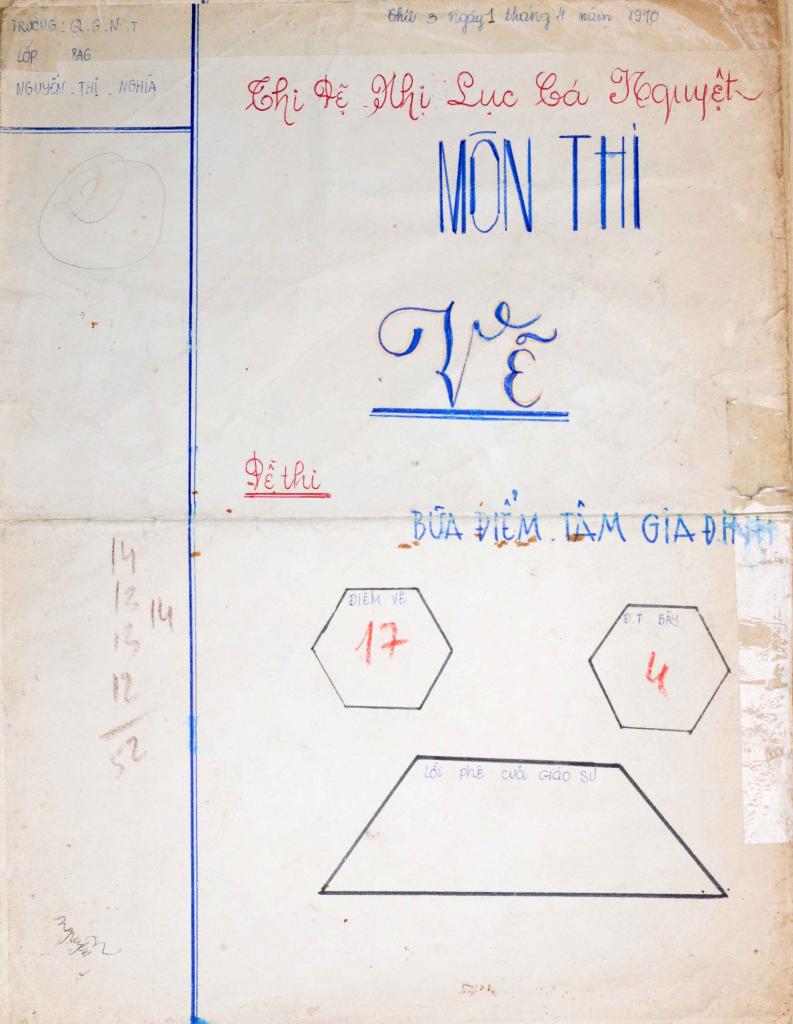 TRƯỜNG : Q . G . N . T
Thứ 3 ngày 1 tháng 4 năm 1970
LỚP 8A6
NGUYỄN . THỊ . NGHĨA
Thi Đệ Nhị Lục Cá Nguyệt
MÔN THI
2
Vẽ
Đề thi
BỮA ĐIỂM . TÂM GIA ĐÌNH
14
12
14
13
12
52
ĐIỂM VẼ
17
Đ.T BẦY
4
LỜI PHÊ CUẢ GIÁO SƯ